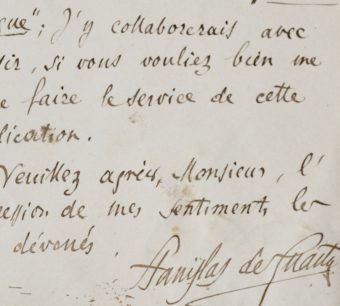 que"; J'y collaborerais avec
sir, si vous vouliez bien me
e faire le service de cette
lication.
Veuillez agréer, Monsieur, l'
ression de mes sentiments les
dévoués.
Stanislas de Guaita